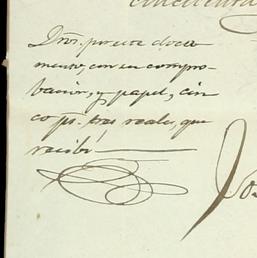 Dros. por este docu-
mento, con su compro-
bacion, y papel, cin
co ps. tres reales, que
recibí
Jos